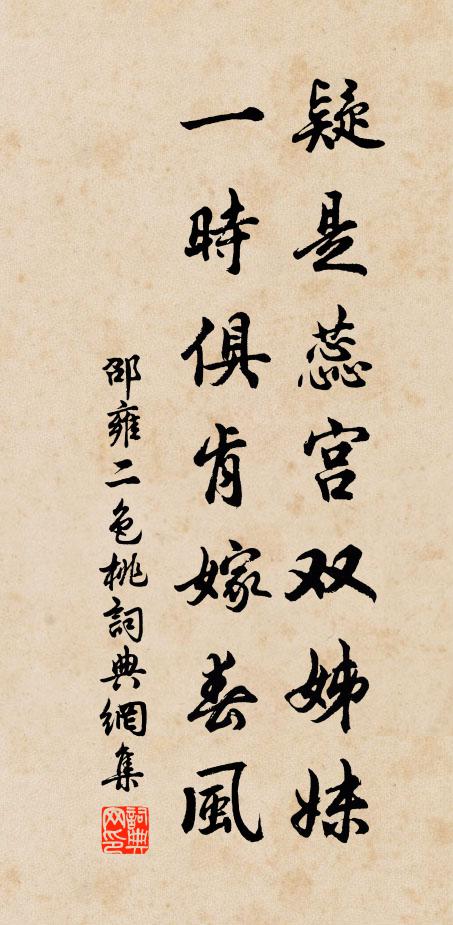 疑是蕊宮双姊妹
一時俱肯嫁春風
邵雍二色桃詞典網集
詞典网印